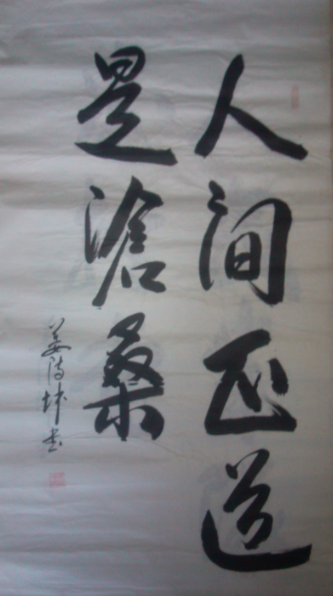 人间正道
是沧桑
姜传坤书